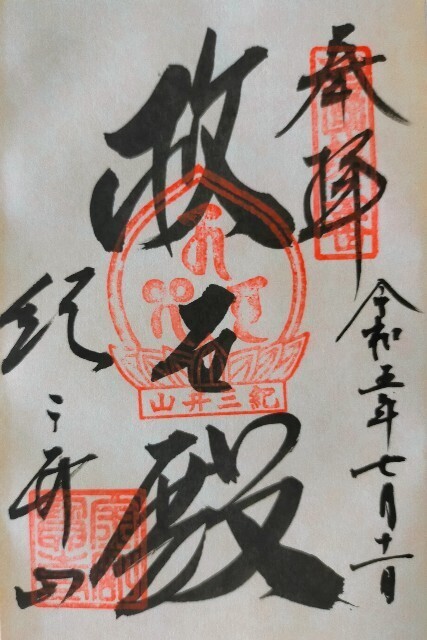 奉拝
令和五年七月十一日
救世殿
紀三井山
紀三井山